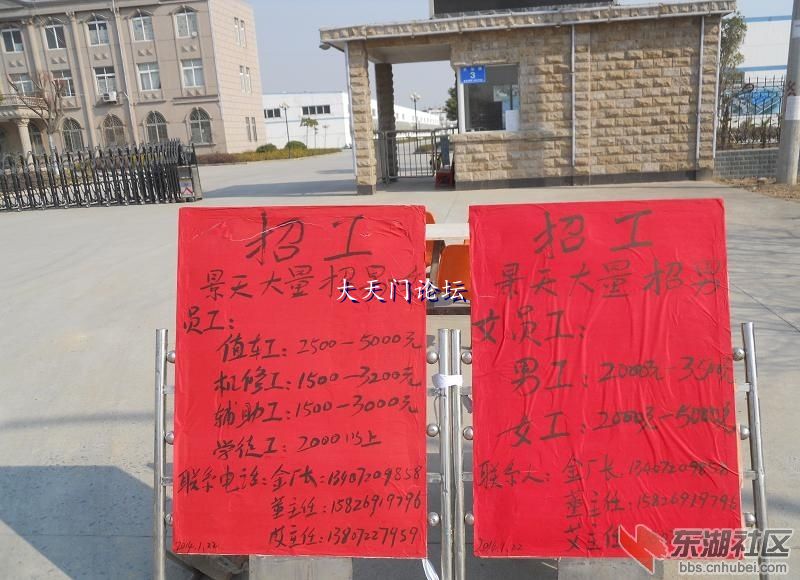 3
招工
景天大量招
员工:
值车工:2500—5000元
机修工:1500—3200元
辅助工:1500—3000元
学徒工:2000以上
联系电话:金厂长:13407209858
董主任:15826919796
艾主任:13807227959
2014.1.22
招工
景天大量招男
女员工:
男工:2000元—3500元
女工:2000元—5000元
联系人:金厂长:13407209858
董主任:15826919796
艾主任
2014.1.22
大天门论坛
东湖社区
bbs.cnhubei.com